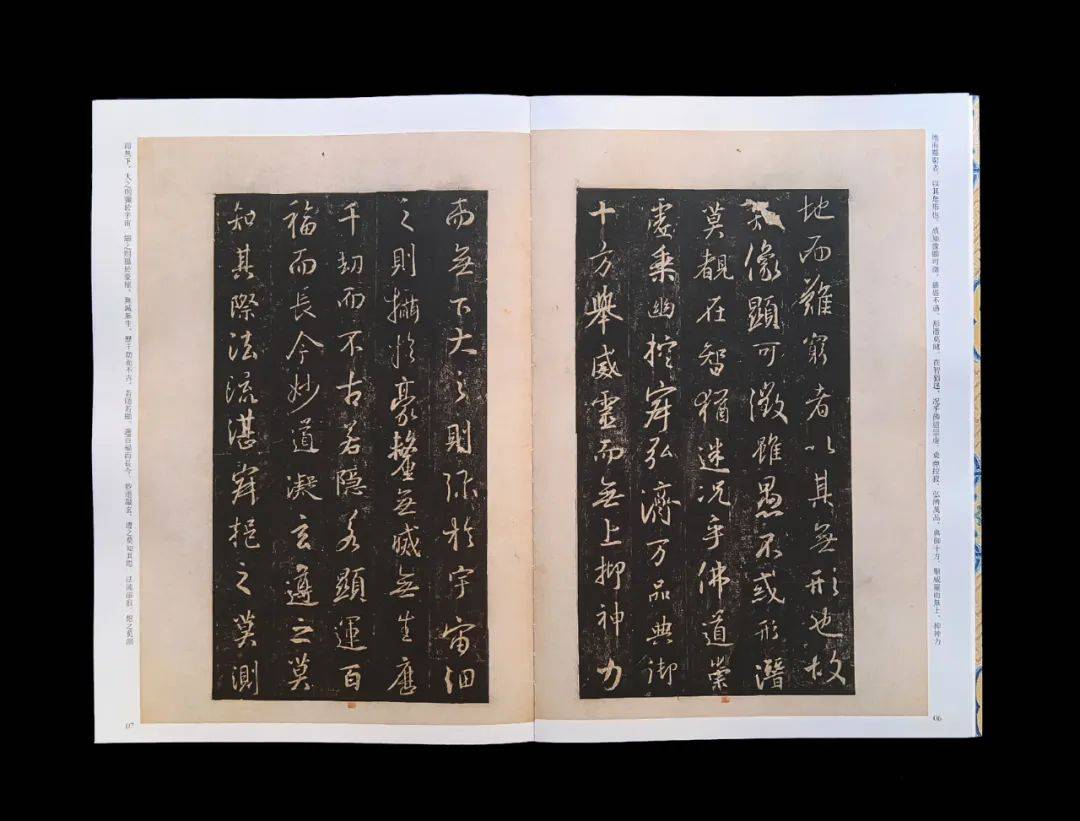 地而難窮者，以其無形也。故知像顯可徵，雖愚不惑，形潛莫覩，在智猶迷。況乎佛道崇虛，乘幽控寂，弘濟萬品，典御十方，舉威靈而無上，抑神力
地而難窮者以其無形也故
知像顯可徵雖愚不惑形潛
莫覩在智猶迷況乎佛道崇
虛乘幽控寂弘濟万品典御
十方舉威靈而無上抑神力
06
而無下大之則弥於宇宙細
之則攝於豪釐無滅無生歷
千劫而不古若隱若顯運百
福而長今妙道凝玄遵之莫
知其際法流湛寂挹之莫測
而無下。大之則彌於宇宙，細之則攝於豪釐。無滅無生，歷千劫而不古，若隱若顯，運百福而長今。妙道凝玄，遵之莫知其際，法流湛寂，挹之莫測
07